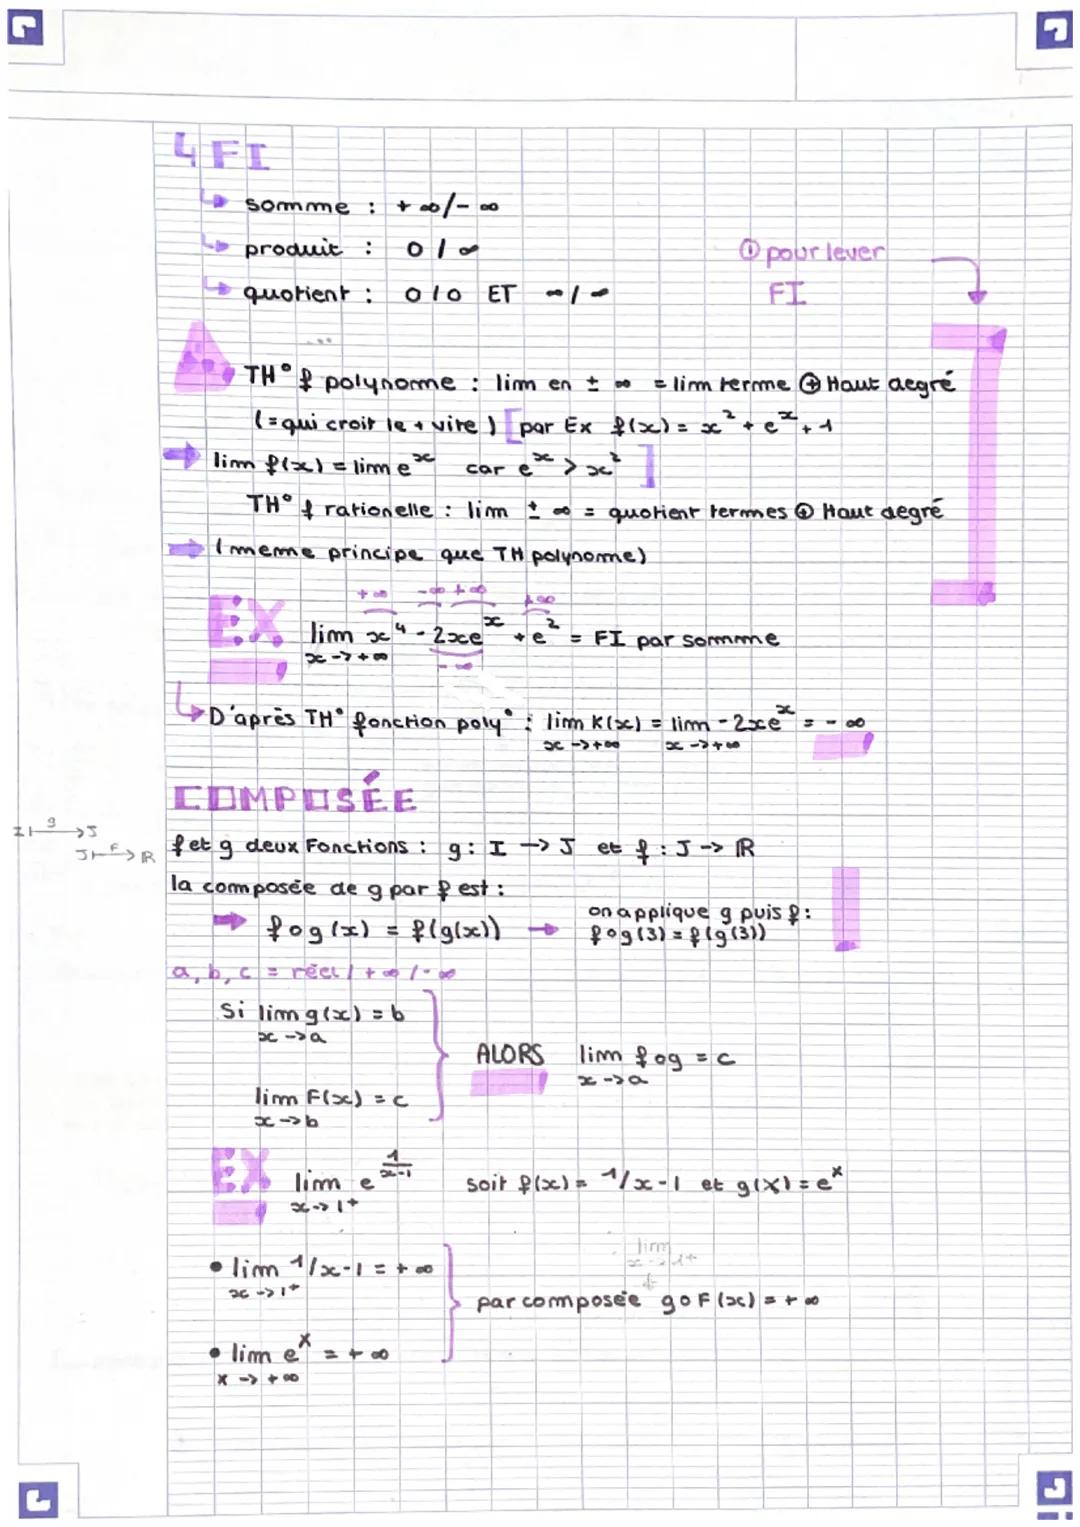 4 FI
↳ somme : +∞/-∞
↳ produit : 0/∞
↳ quotient : 0/0 ET ∞/∞
① pour lever
FI
TH° f polynome : lim en ± ∞ = lim terme ⊕ Haut degré
(= qui croit le + vite) [par Ex f(x) = x² + eˣ + 1
→ lim f(x) = lim eˣ car eˣ > x²]
TH° f rationelle : lim ± ∞ = quotient termes ⊕ Haut degré
→ (meme principe que TH polynome)
+∞ -∞ +∞ +∞
EX lim x⁴ - 2xeˣ + e² = FI par somme
x -> +∞
-∞
↳ D'après TH° fonction poly° : lim K(x) = lim -2xeˣ = -∞
x -> +∞ x -> +∞
COMPOSÉE
I g → J
J F → ℝ
f et g deux Fonctions : g : I -> J et f : J -> ℝ
la composée de g par f est :
→ fog(x) = f(g(x)) → on applique g puis f :
fog(3) = f(g(3))
a, b, c = réel / +∞ / -∞
Si lim g(x) = b
x -> a
ALORS lim fog = c
x -> a
lim F(x) = c
x -> b
EX lim e^(1/(x-1)) soit f(x) = 1/x-1 et g(X) = e^X
x -> 1⁺
lim
x -> 1+
• lim 1/x-1 = +∞
x -> 1⁺
par composée goF(x) = +∞
• lim e^X = +∞
X -> +∞